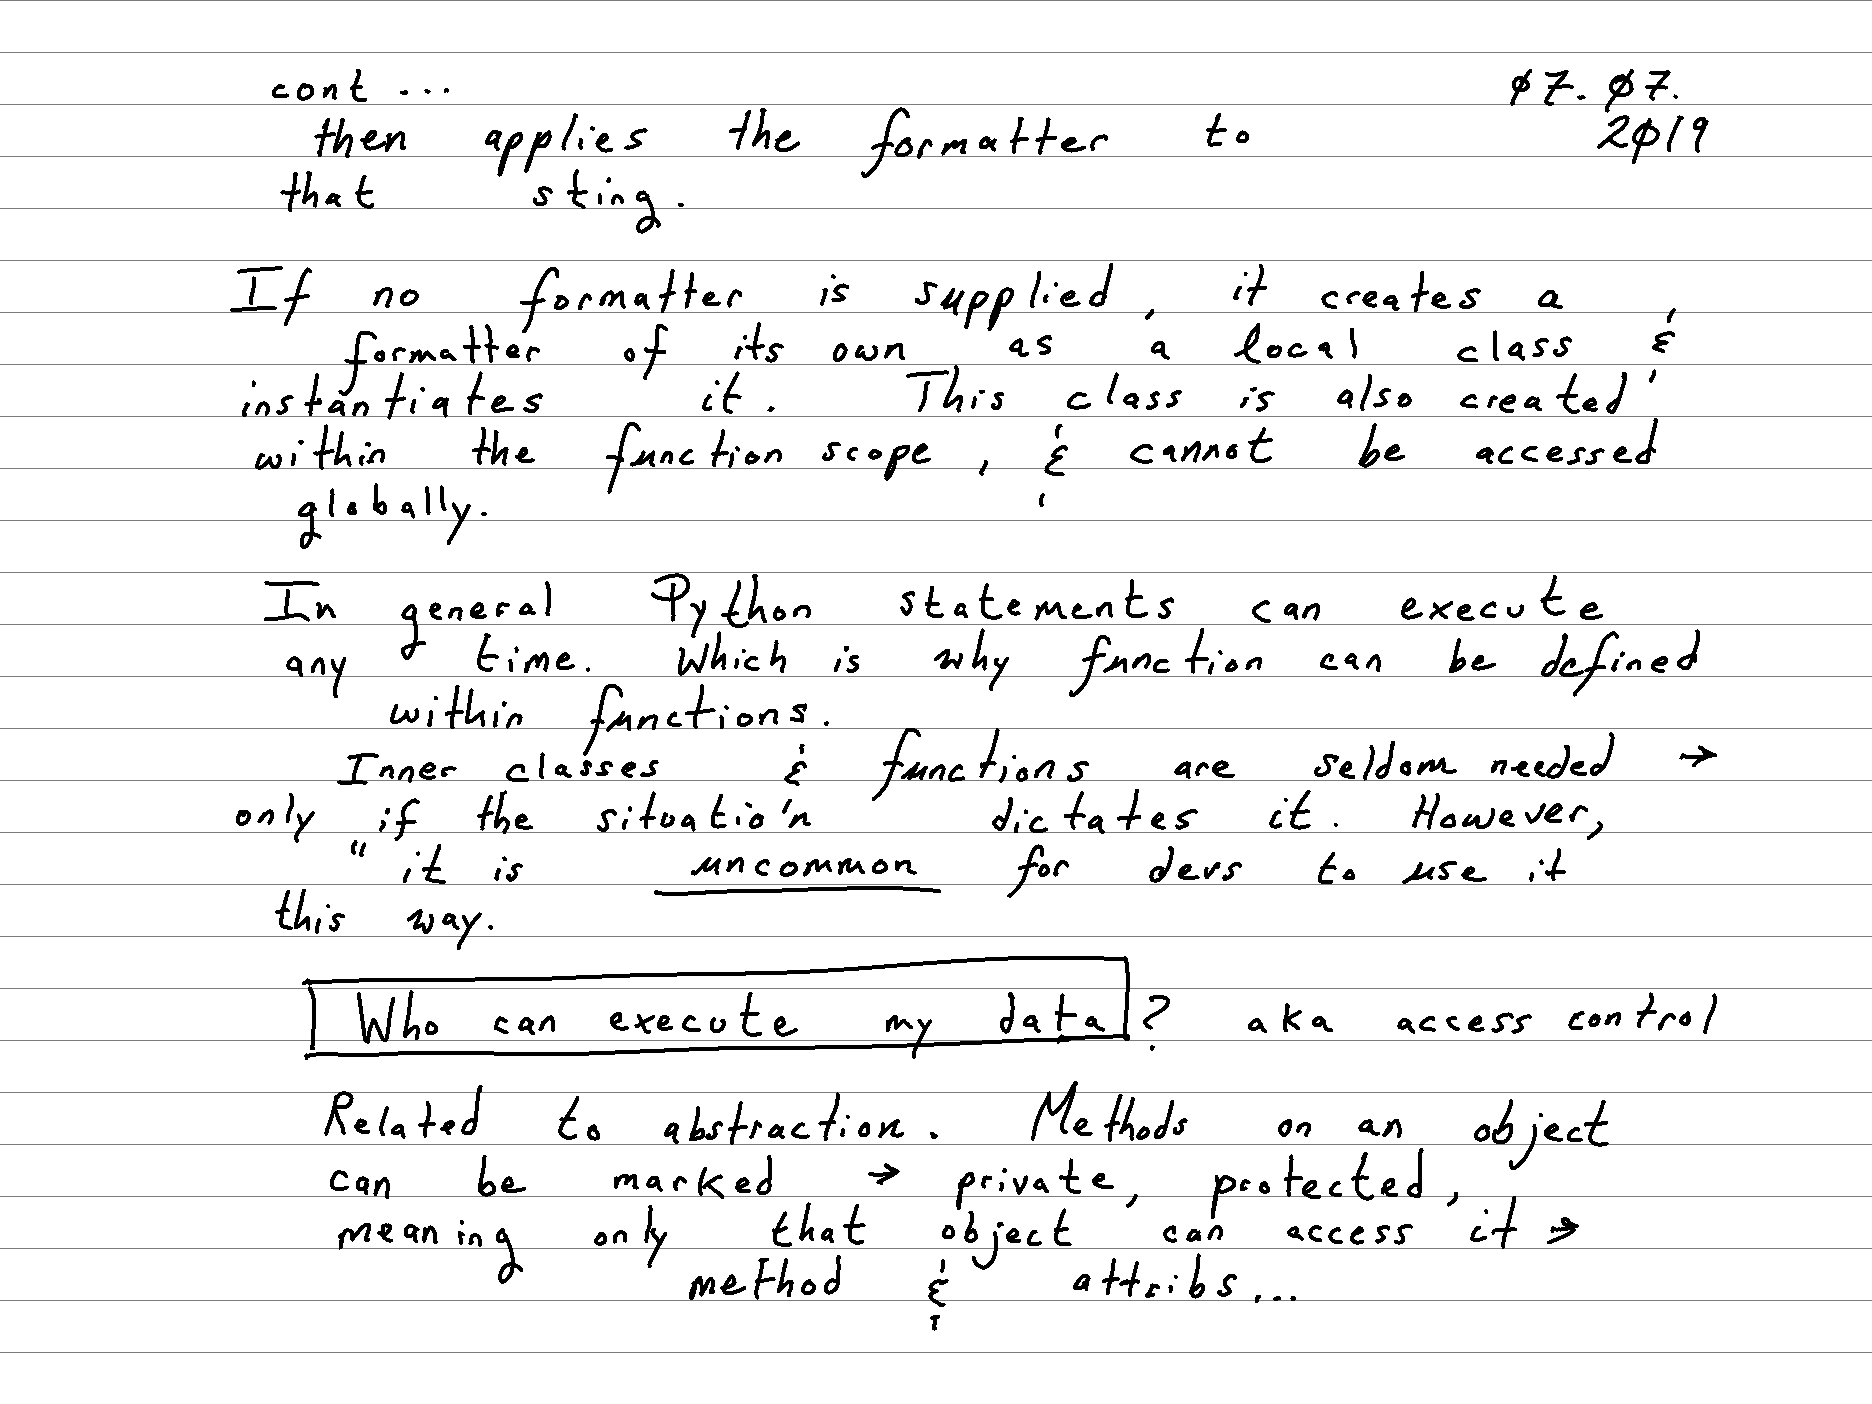 cont ... 07. 07.
then applies the formatter to 2019
that sting.
If no formatter is supplied, it creates a
formatter of its own as a local class &
instantiates it. This class is also created
within the function scope, & cannot be accessed
globally.
In general Python statements can execute
any time. Which is why function can be defined
within functions.
Inner classes & functions are seldom needed →
only if the situation dictates it. However,
" it is uncommon for devs to use it
this way.
Who can execute my data? aka access control
Related to abstraction. Methods on an object
can be marked → private, protected,
meaning only that object can access it →
method & attribs...